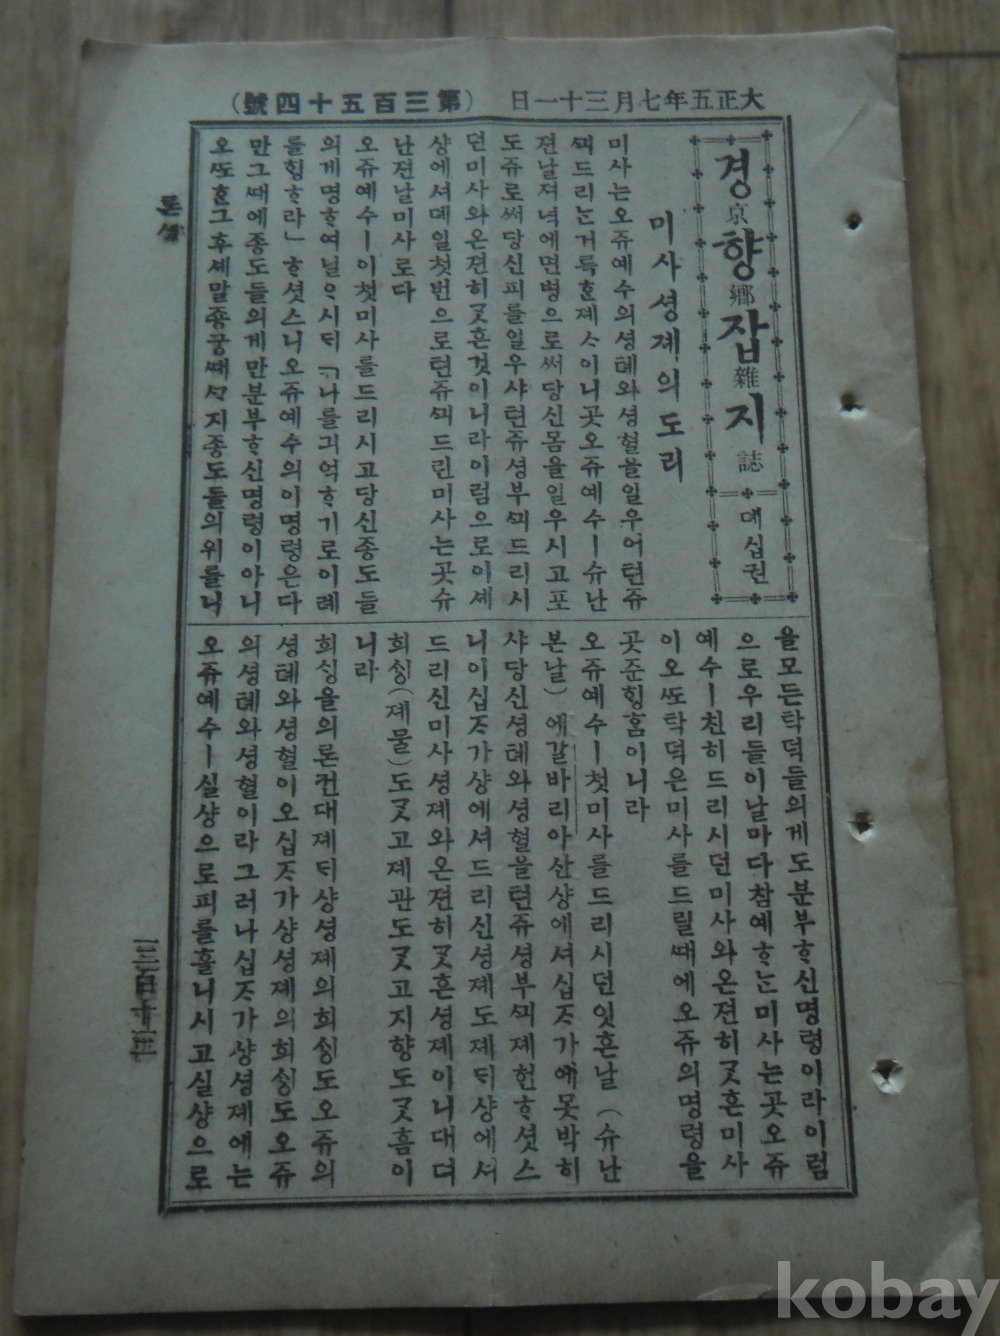 大正五年七月三十一日 (第三百五十四號)
경京향鄕잡雜지誌 뎨십권
미사셩졔의도리
미사는오쥬예수의셩톄와셩혈을일우어텬쥬
ᄭᅴ드리ᄂᆞᆫ거륵ᄒᆞᆫ졔ᄉᆞ이니곳오쥬예수ㅣ슈난
젼날져녁에면병으로써당신몸을일우시고포
도쥬로써당신피를일우샤텬쥬셩부ᄭᅴ드리시
던미사와온젼히ᄀᆞᆺ흔것이니라이럼으로이셰
샹에셔뎨일첫번으로텬쥬ᄭᅴ드린미사는곳슈
난젼날미사로다
오쥬예수ㅣ이첫미사를드리시고당신종도들
의게명ᄒᆞ여닐ᄋᆞ시ᄃᆡ「나를긔억ᄒᆞ기로이례
를ᄒᆡᆼᄒᆞ라」ᄒᆞ셧스니오쥬예수의이명령은다
만그ᄯᅢ에종도들의게만분부ᄒᆞ신명령이아니
오ᄯᅩᄒᆞᆫ그후셰말죵궁ᄯᅢᄭᆞ지종도들의위를니
을모든탁덕들의게도분부ᄒᆞ신명령이라이럼
으로우리들이날마다참예ᄒᆞᄂᆞᆫ미사는곳오쥬
예수ㅣ친히드리시던미사와온젼히ᄀᆞᆺ흔미사
이오ᄯᅩ탁덕은미사를드릴ᄯᅢ에오쥬의명령을
곳준ᄒᆡᆼ홈이니라
오쥬예수ㅣ첫미사를드리시던잇흔날(슈난
본날)에갈바리아산샹에셔십ᄌᆞ가에못박히
샤당신셩톄와셩혈을텬쥬셩부ᄭᅴ졔헌ᄒᆞ셧스
니이십ᄌᆞ가샹에셔드리신셩졔도졔ᄃᆡ샹에셔
드리신미사셩졔와온젼히ᄀᆞᆺ흔셩졔이니대뎌
희ᄉᆡᆼ(졔물)도ᄀᆞᆺ고졔관도ᄀᆞᆺ고지향도ᄀᆞᆺ흠이
니라
희ᄉᆡᆼ을의론컨대졔ᄃᆡ샹셩졔의희ᄉᆡᆼ도오쥬의
셩톄와셩혈이오십ᄌᆞ가샹셩졔의희ᄉᆡᆼ도오쥬
의셩톄와셩혈이라그러나십ᄌᆞ가샹셩졔에는
오쥬예수ㅣ실샹으로피를흘니시고실샹으로
론셜
三百十三
kobay